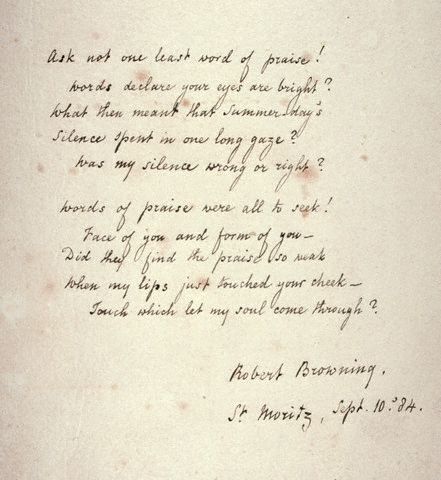 Ask not one least word of praise!
Words declare your eyes are bright?
What then meant that Summer-day's
Silence spent in one long gaze?
Was my silence wrong or right?
Words of praise were all to seek!
Face of you and form of you—
Did they find the praise so weak
When my lips just touched your cheek—
Touch which let my soul come through?
Robert Browning.
St Moritz, Sept. 10. 84.